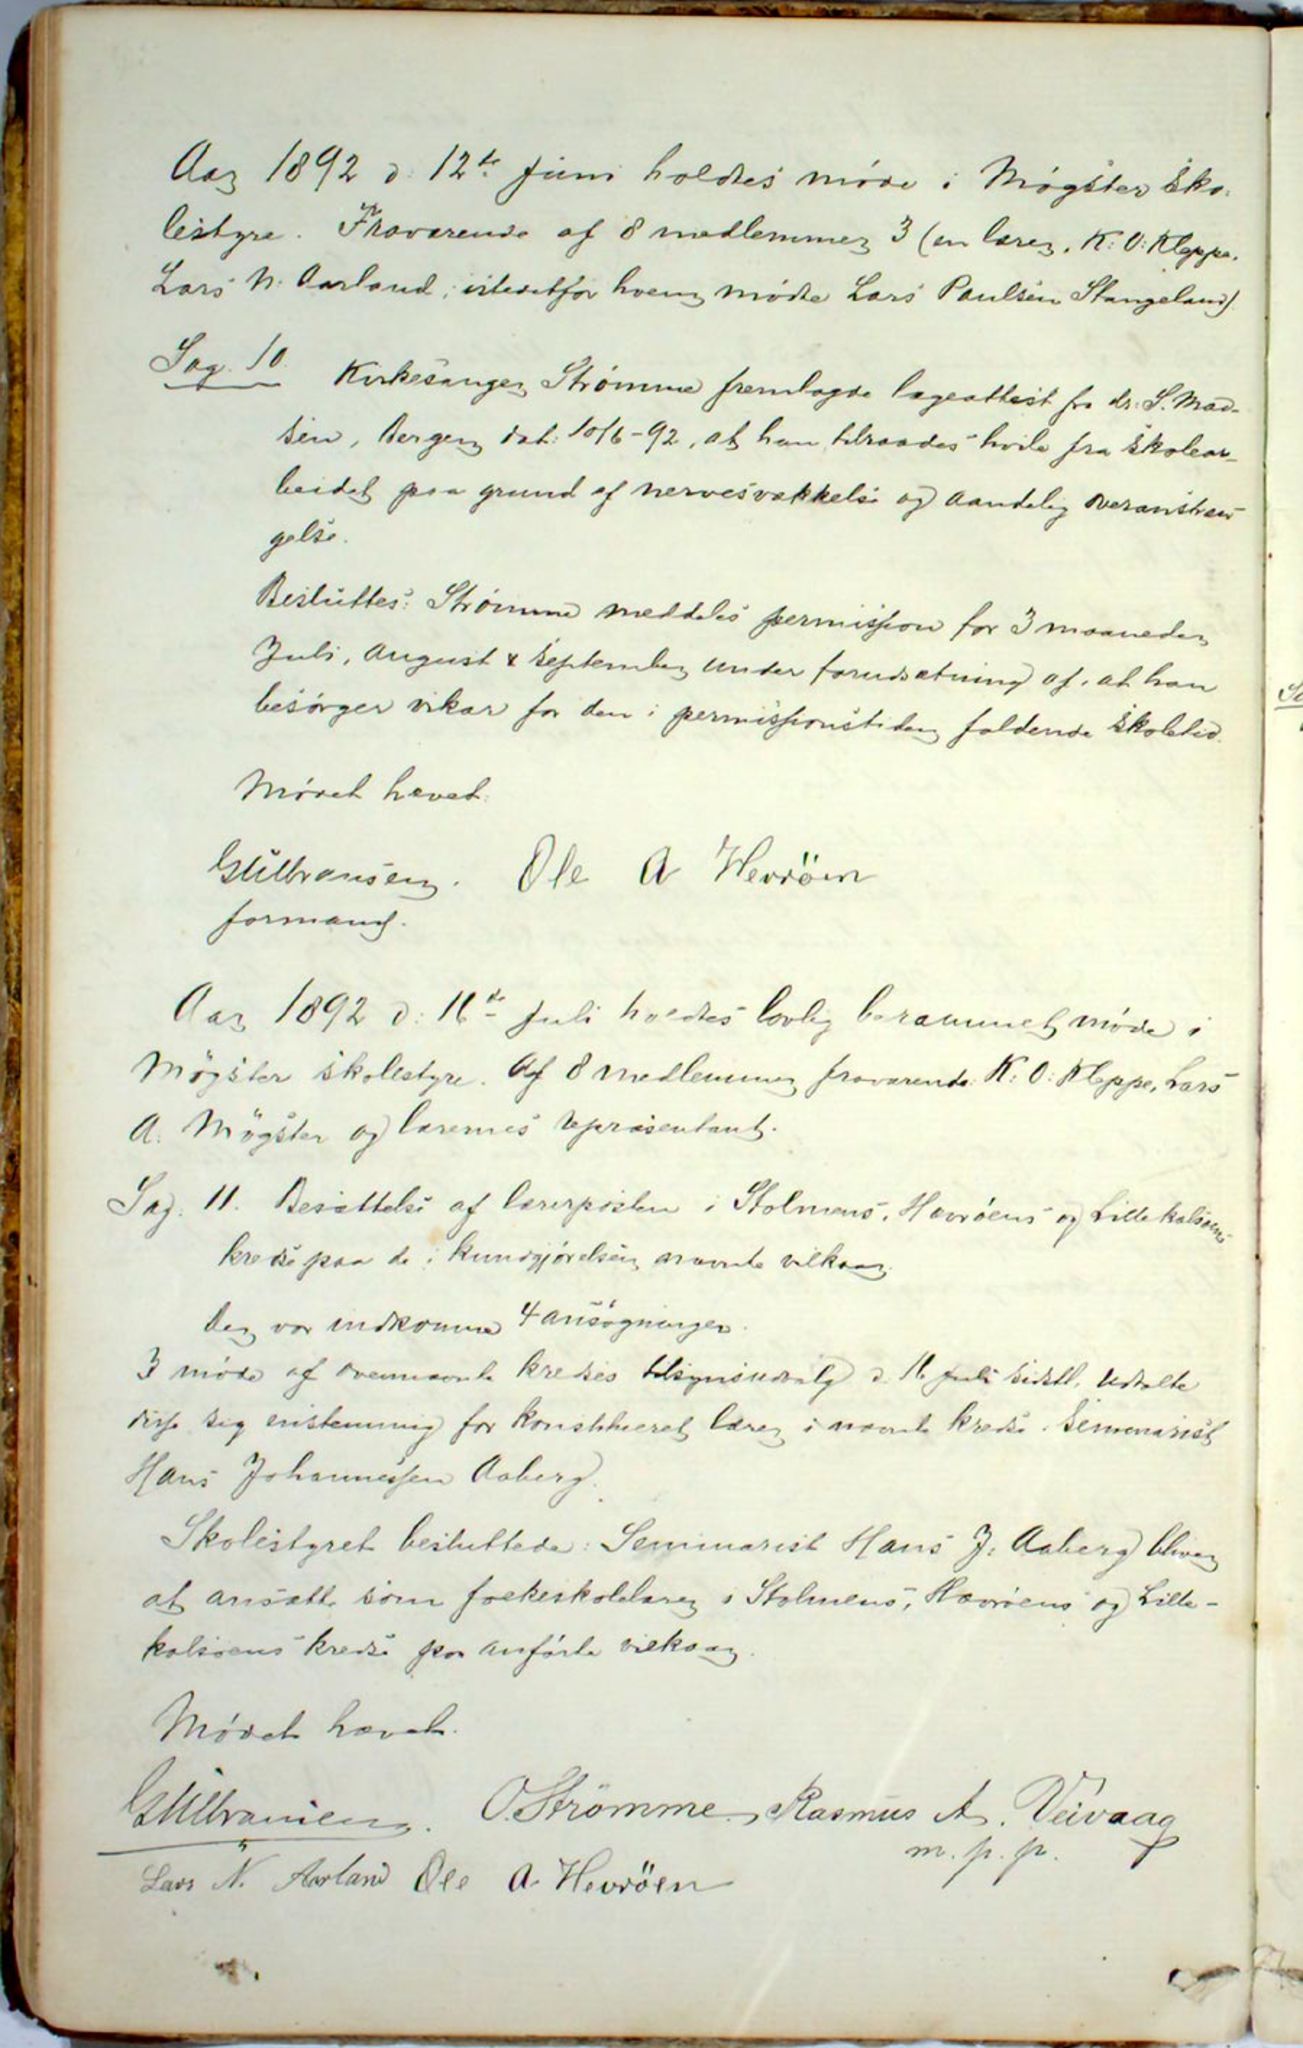 Aar 1892 d: 12te juni holdtes møde i Møgster sko-
lestyre. Fraværende af 8 medlemmer 3 (en lærer, K: O: Kleppe,
Lars N. Aarland, istedetfor hvem mødte Lars Paulsen Stangeland)
Sag. 10. Kirkesanger Strømme fremlagde lægeattest fra dr. S. Mad-
sen, Bergen dat: 10/6-92, at han tilraades hvile fra skolear-
beidet paa grund af nervesvækkelse og aandelig overanstren-
gelse.
Besluttes: Strømme meddeles permission for 3 maaneder,
Juli, August & September under forudsætning af, at han
besørger vikar for den i permissionstiden faldende skoletid.
Mødet hævet.
Gulbransen. Ole A Hevröen
formand.
Aar 1892 d: 16de juli holdtes lovlig berammet møde i
Møgster skolestyre. Af 8 medlemmer fraværende: K: O: Kleppe, Lars
A. Møgster og lærernes repræsentant.
Sag: 11. Besættelse af lærerposten i Stolmens, Hævrøens og Lillekalsøens
kredse paa de i kundgjørelsen nævnte vilkaar.
Der var indkomne 4 ansøgninger.
I møde af ovennævnte kredses tilsynsudvalg d. juli sidstl. udtalte
disse sig enstemmig for konstitueret lærer i nævnte kredse. Seminarist
Hans Johannessen Aaberg.
Skolestyret besluttede: Seminarist Hans J: Aaberg bliver
at ansætte som folkeskolelærer i Stolmens, Hævrøens og Lille-
kalsøens kredse paa anførte vilkaar.
Mødet hævet.
Gulbransen. O. Strömme Rasmus A. Veivaag
m. p. p.
Lars N. Aarland Ole A. Hevröen